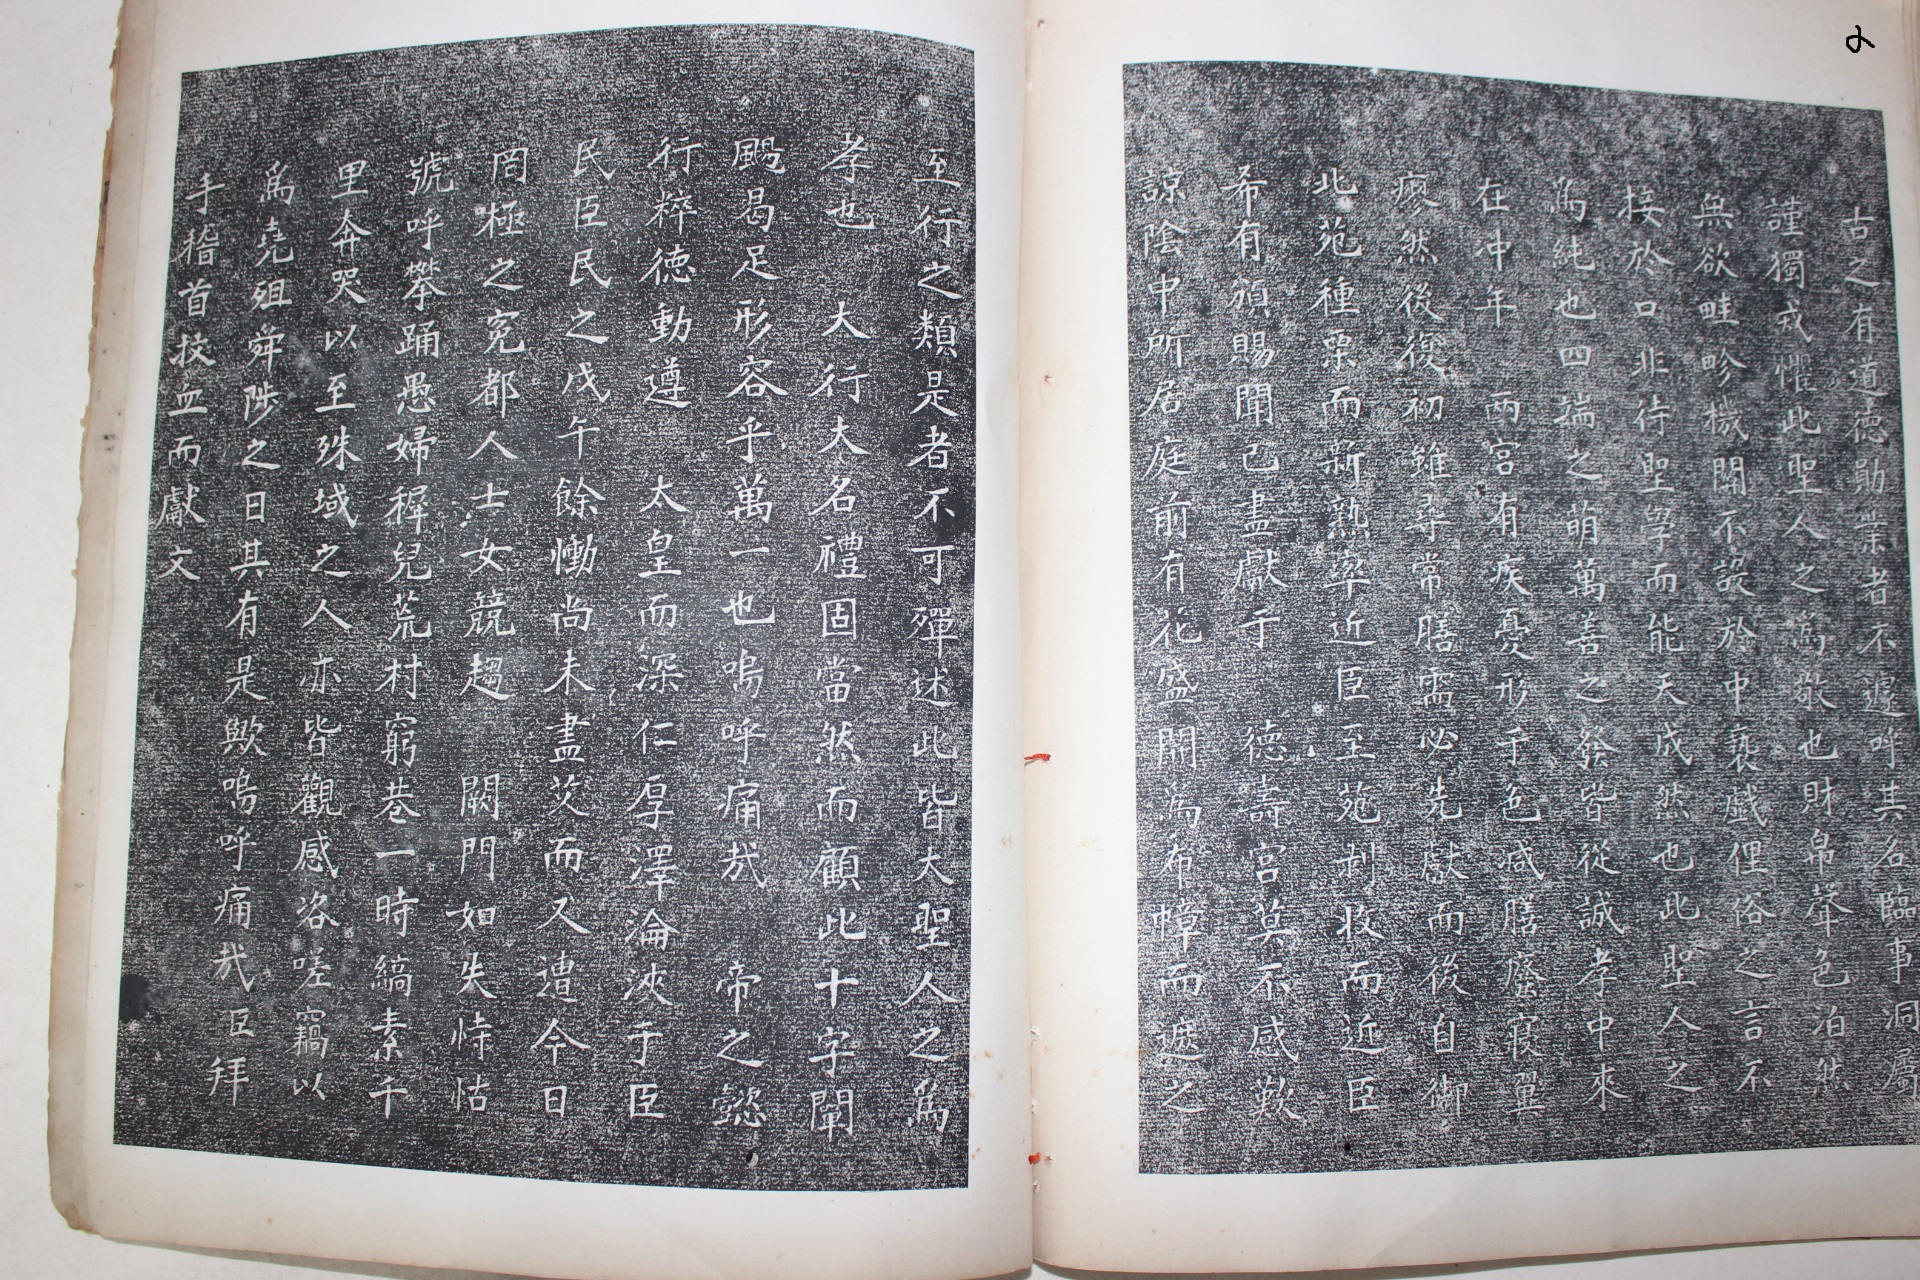 古之有道德勛業者不遽呼其名臨事洞屬
謹獨戒懼此聖人之爲敬也財帛聲色泊然
無欲畦畛機關不設於中褻戱俚俗之言不
接於口非待聖學而能天成然也此聖人之
爲純也四端之萌萬善之發皆從誠孝中來
在冲年 兩宮有疾憂形于色减膳廢寢
瘐然後復初雖尋常膳需必先獻而後自御
北苑種栗而新熟率近臣至苑剥收而近臣
希有頒賜聞已盡獻于 德壽宮莫不感歎
諒陰中所居庭前有花盛開爲布幃而遮之
至行之類是者不可殫述此皆大聖人之爲
孝也 大行大名禮固當然而顧此十字闡
颺曷足形容乎萬一也嗚呼痛㦲 帝之懿
行粹德動遵 太皇而深仁厚澤淪浹于臣
民臣民之戊午餘慟尚未盡艾而又遭今日
罔極之寃都人士女競趨 闕門如失恃怙
號呼攀踊愚婦穉兒荒村窮巷一時縞素千
里奔哭以至殊域之人亦皆觀感咨嗟竊以
爲堯殂舜陟之日其有是歟嗚呼痛㦲臣拜
手稽首抆血而獻文